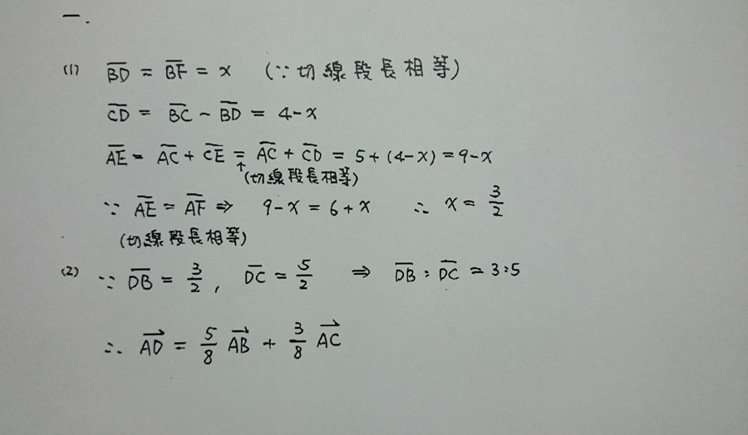 一.
(1) \overline{BD} = \overline{BF} = x (∵切線段長相等)
\overline{CD} = \overline{BC} - \overline{BD} = 4-x
\overline{AE} = \overline{AC} + \overline{CE} = \overline{AC} + \overline{CD} = 5+(4-x) = 9-x
↑(切線段長相等)
∵ \overline{AE} = \overline{AF} ⇒ 9-x = 6+x ∴ x = \frac{3}{2}
(切線段長相等)
(2) ∵ \overline{DB} = \frac{3}{2}, \overline{DC} = \frac{5}{2} ⇒ \overline{DB} : \overline{DC} = 3:5
∴ \overrightarrow{AD} = \frac{5}{8} \overrightarrow{AB} + \frac{3}{8} \overrightarrow{AC}